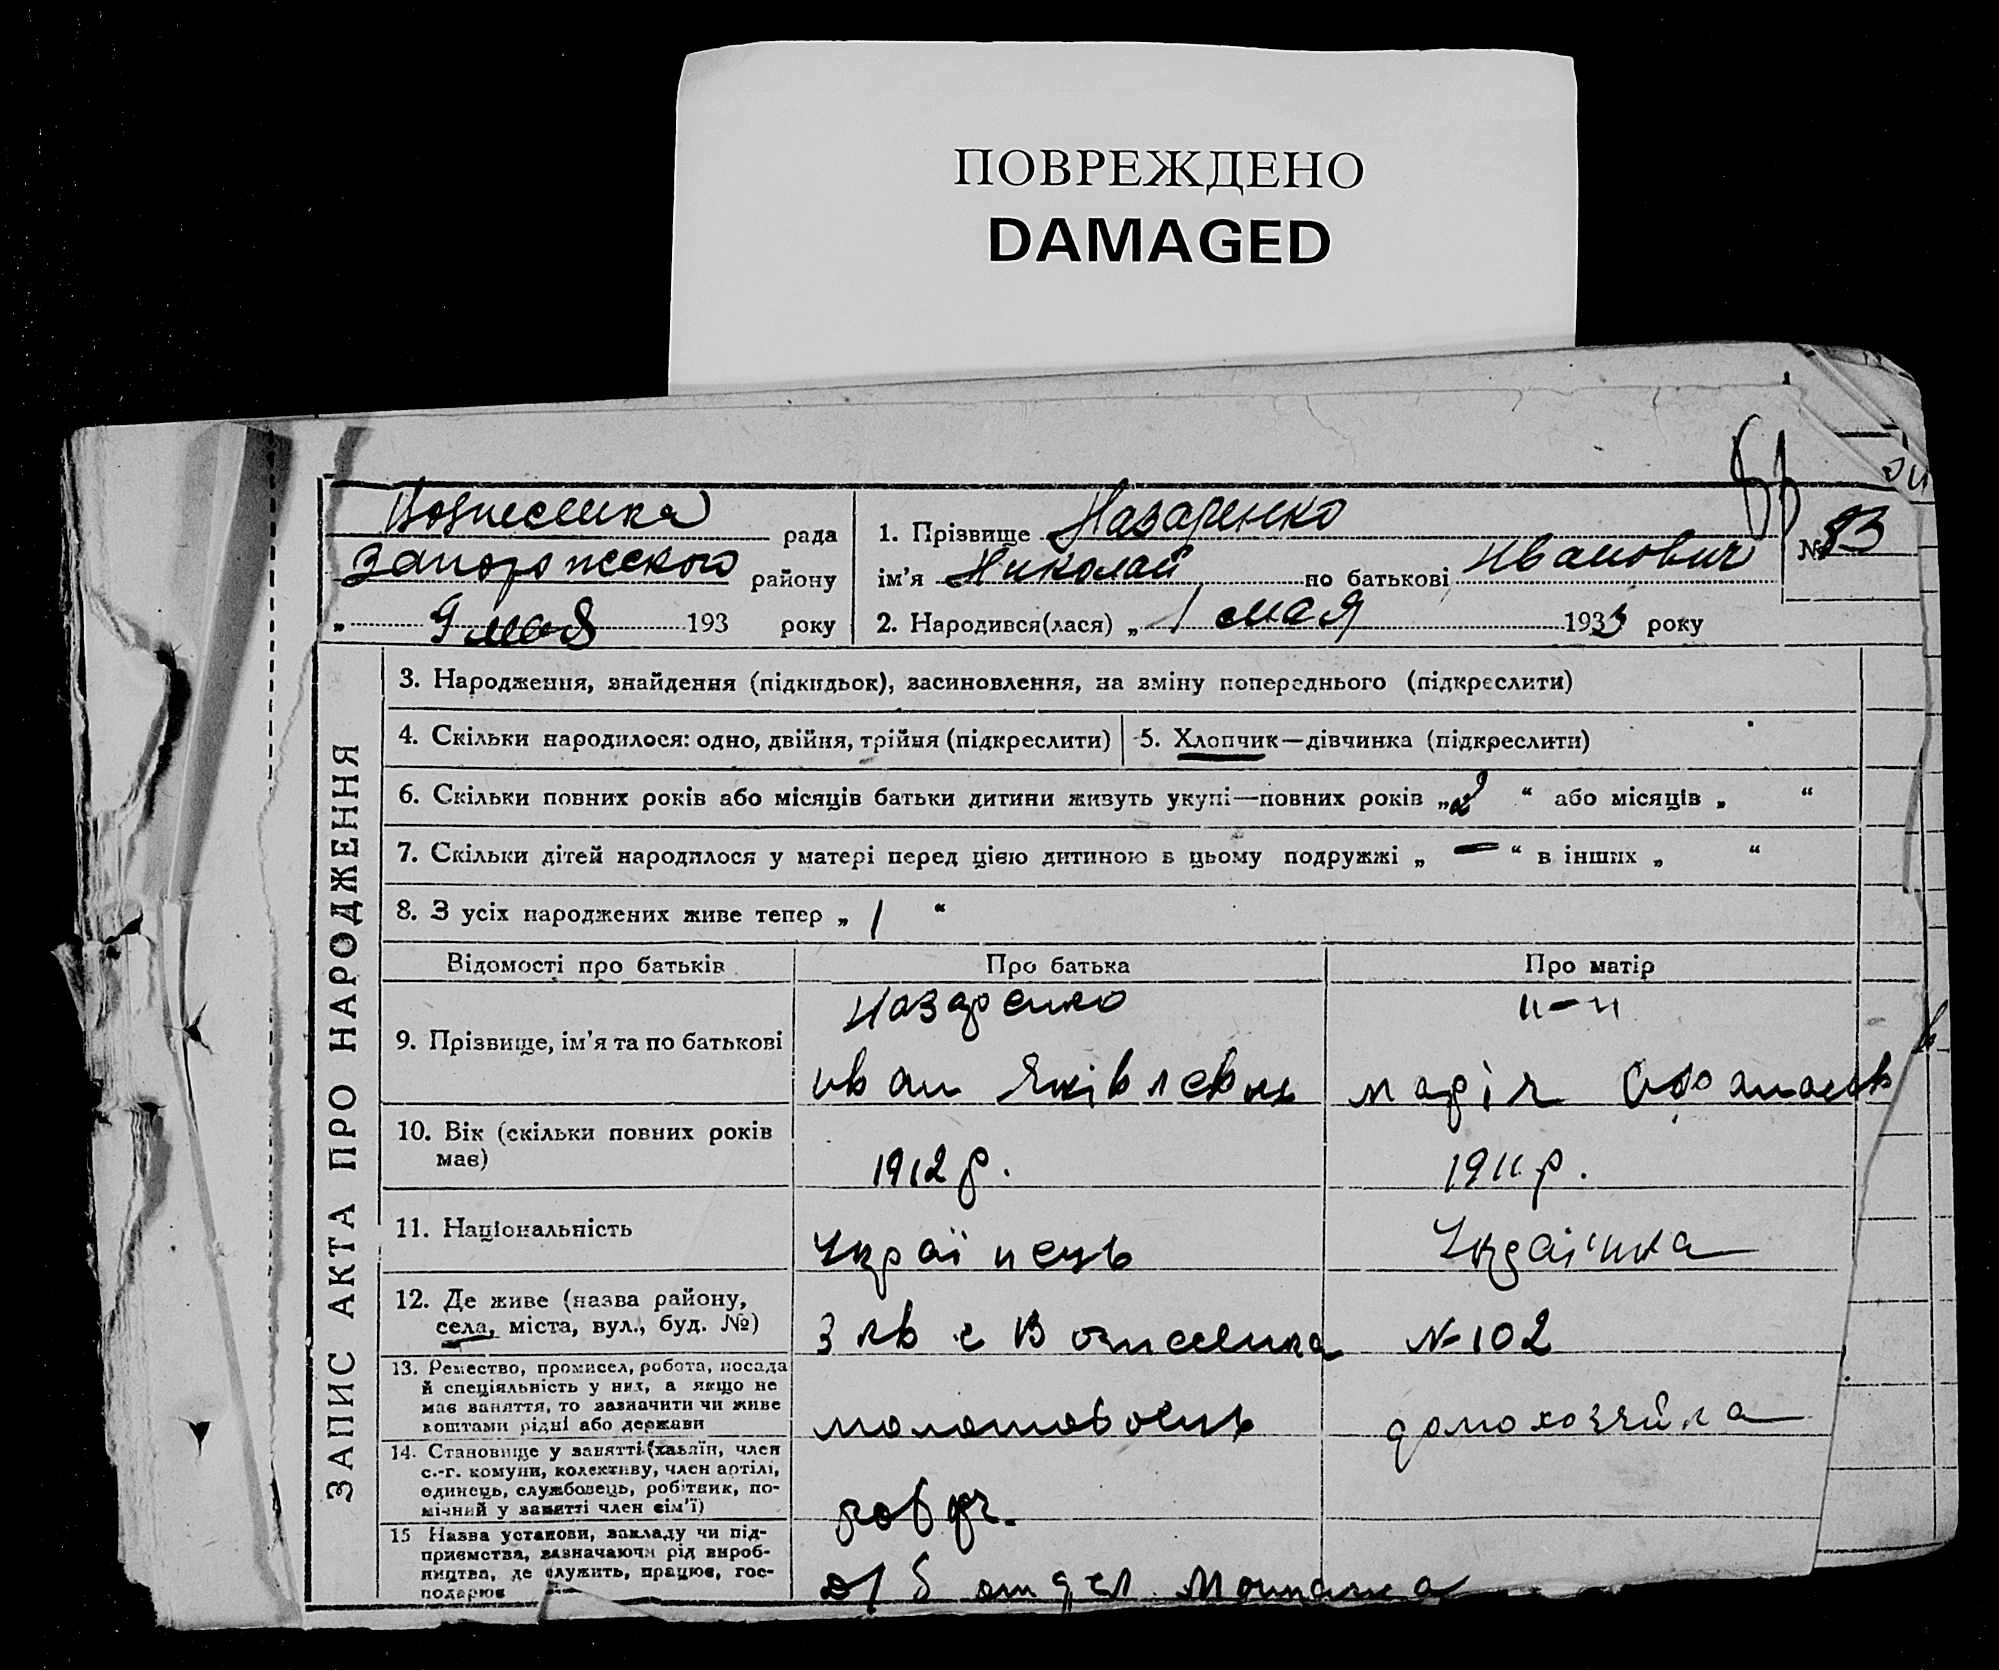 ПОВРЕЖДЕНО
DAMAGED
Вознесенка рада
Запорожского району
„ 9 мая 193 року
1. Прізвище Назаренко
ім’я Николай по батькові Иванович
2. Народився(лася) „ 1 мая 1933 року
№ 83
ЗАПИС АКТА ПРО НАРОДЖЕННЯ
3. Народження, знайдення (підкидьок), засиновлення, на зміну попереднього (підкреслити)
4. Скільки народилося: одно, двійня, трійня (підкреслити)
5. Хлопчик—дівчинка (підкреслити)
6. Скільки повних років або місяців батьки дитини живуть укупі—повних років „2“ або місяців „ “
7. Скільки дітей народилося у матері перед цією дитиною в цьому подружжі „—“ в інших „ “
8. З усіх народжених живе тепер „ 1 “
Відомості про батьків Про батька Про матір
9. Прізвище, ім’я та по батькові
Назаренко
Иван Яківлевич
"—"
Марія Афанасев
10. Вік (скільки повних років
має)
1912 р. 1911 р.
11. Національність Українець Українка
12. Де живе (назва району,
села, міста, вул., буд. №)
с Вознесенка № 102
13. Ремество, промисел, робота, посада
й спеціяльність у них, а якщо не
має заняття, то зазначити чи живе
коштами рідні або держави
молотовоець домохозяйка
14. Становище у занятті (хазяїн, член
с.-г. комуни, колективу, член артілі,
одинець, службовець, робітник, по-
мічний у занятті член сім’ї)
15 Назва установи, закладу чи під-
приємства, зазначаючи рід вироб-
ництва, де служить, працює, гос-
подарює
отдел